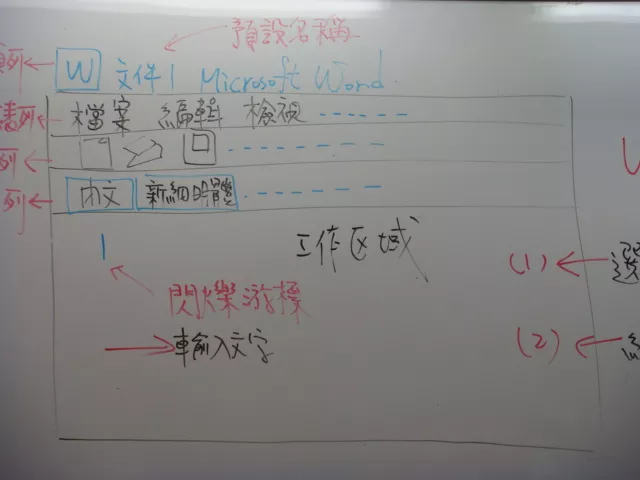 預設名稱
列 W 文件1 Microsoft Word
列 檔案 編輯 檢視
列
列 內文 新細明體
工作区域
(1) 選
閃爍游標
輸入文字
(2)